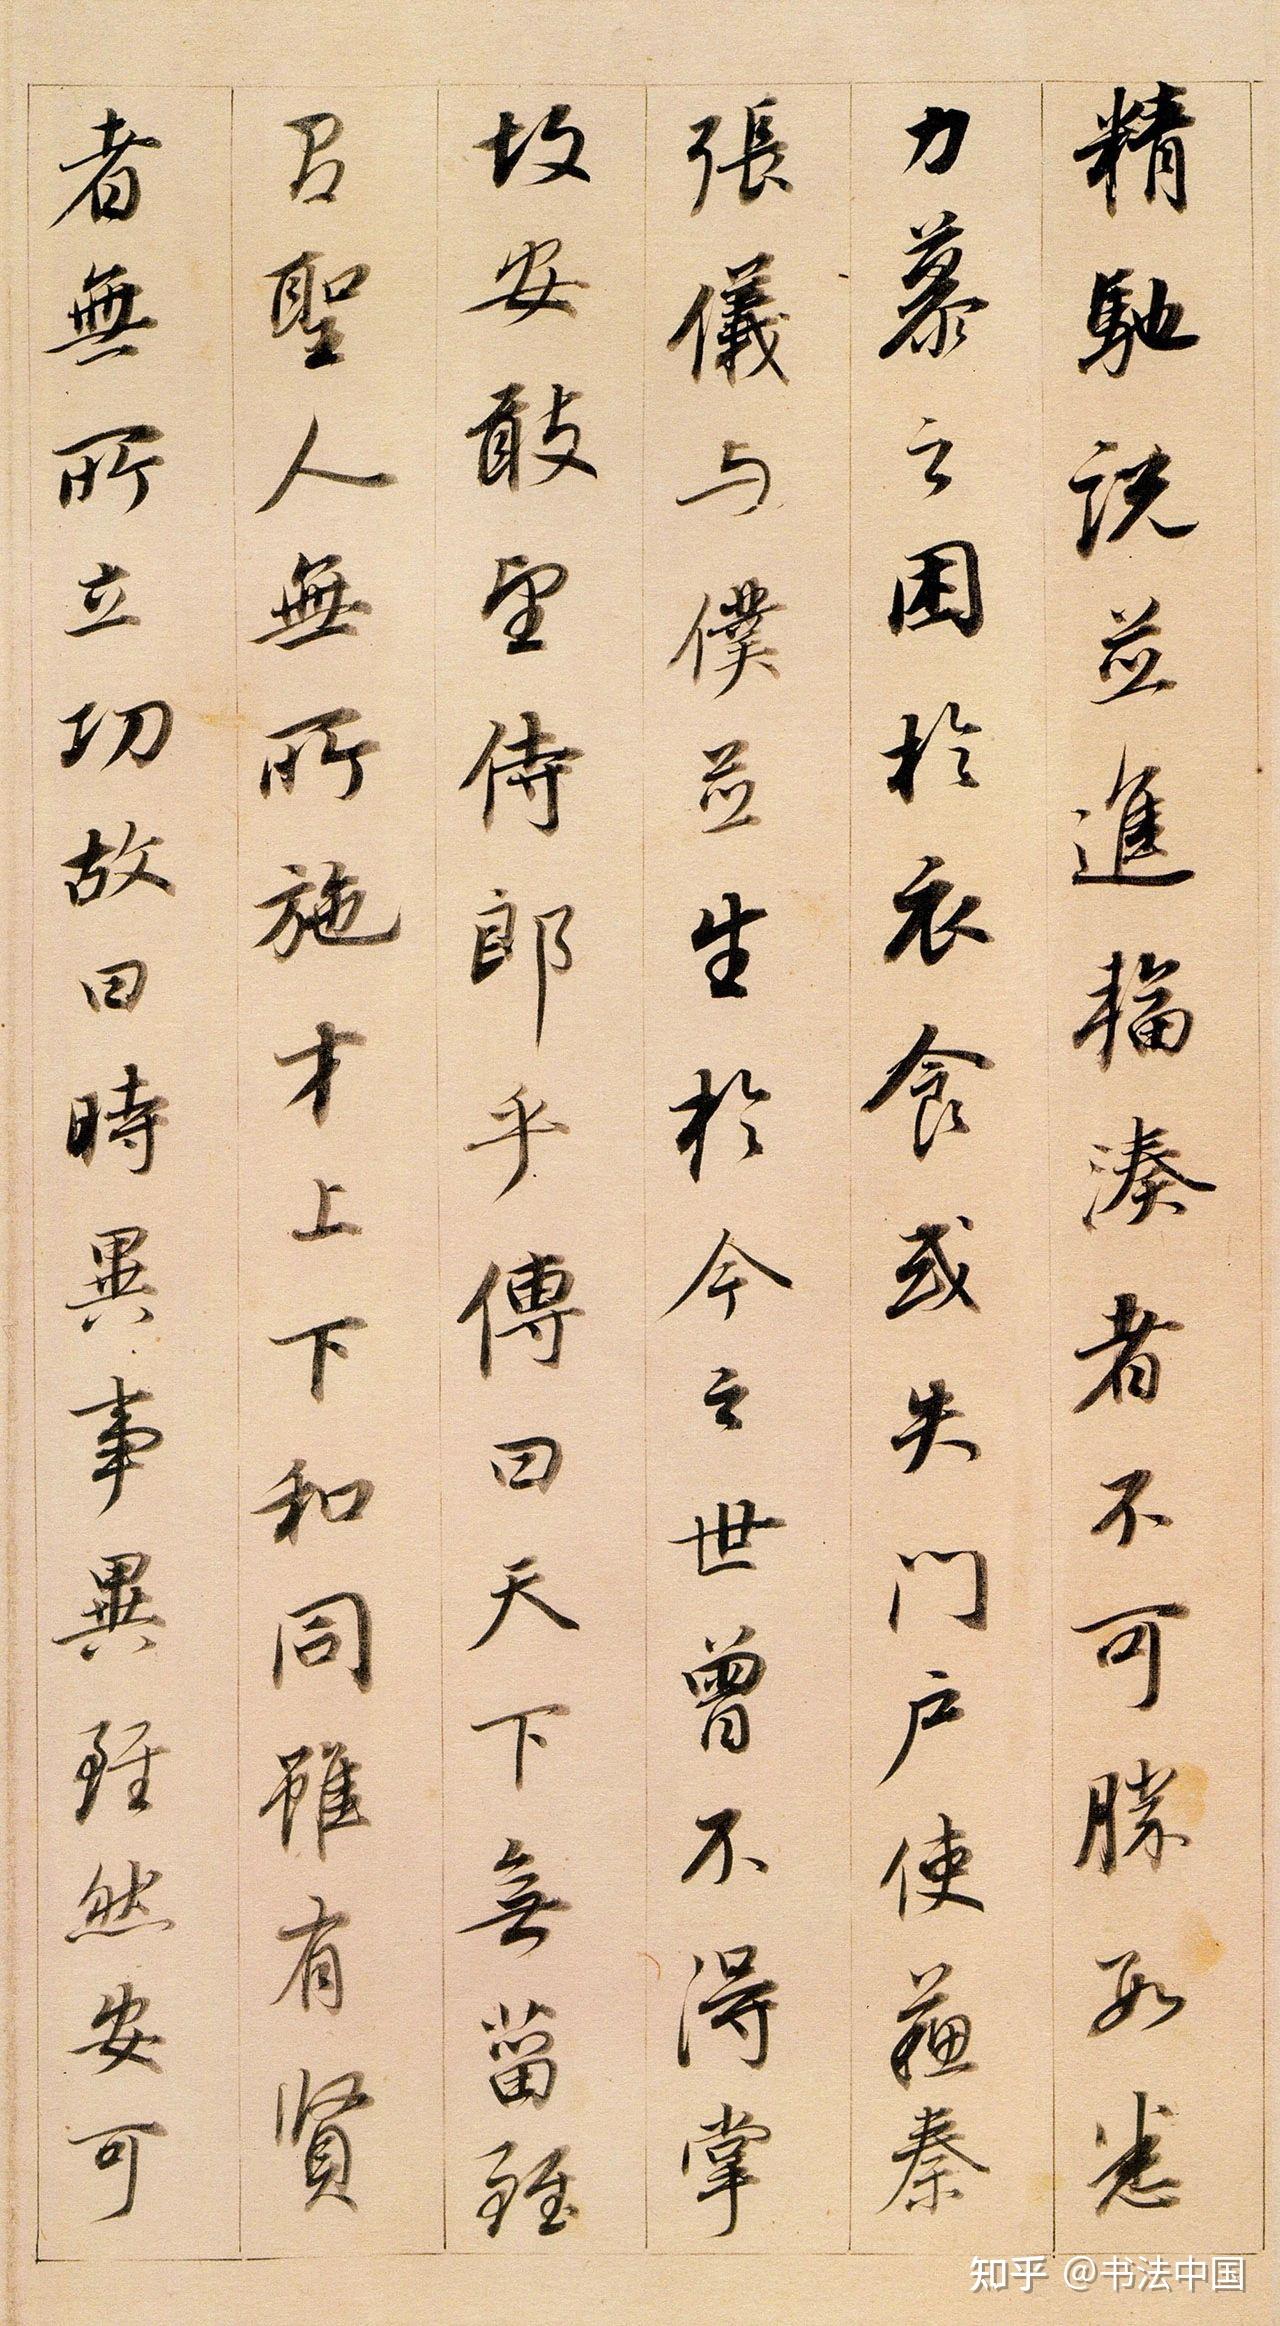 精馳説並進輻湊者不可勝數悉
力慕之困於衣食或失門户使蘇秦
張儀与僕並生於今之世曾不得掌
故安敢望侍郎乎傳曰天下無菑雖
聖人無所施才上下和同雖有賢
者無所立功故曰時異事異雖然安可
知乎 @书法中国